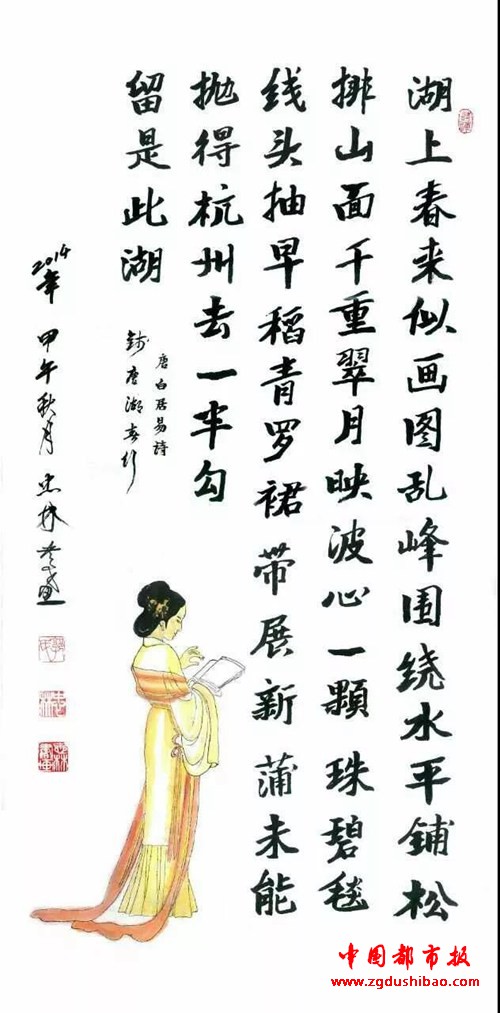 湖上春来似画图乱峰围绕水平铺松
排山面千重翠月映波心一顆珠碧毯
线头抽早稻青罗裙带展新蒲未能
抛得杭州去一半勾
留是此湖
唐白居易詩
钱唐湖春行
2014年 甲午秋月
中国都市报
www.zgdushibao.com